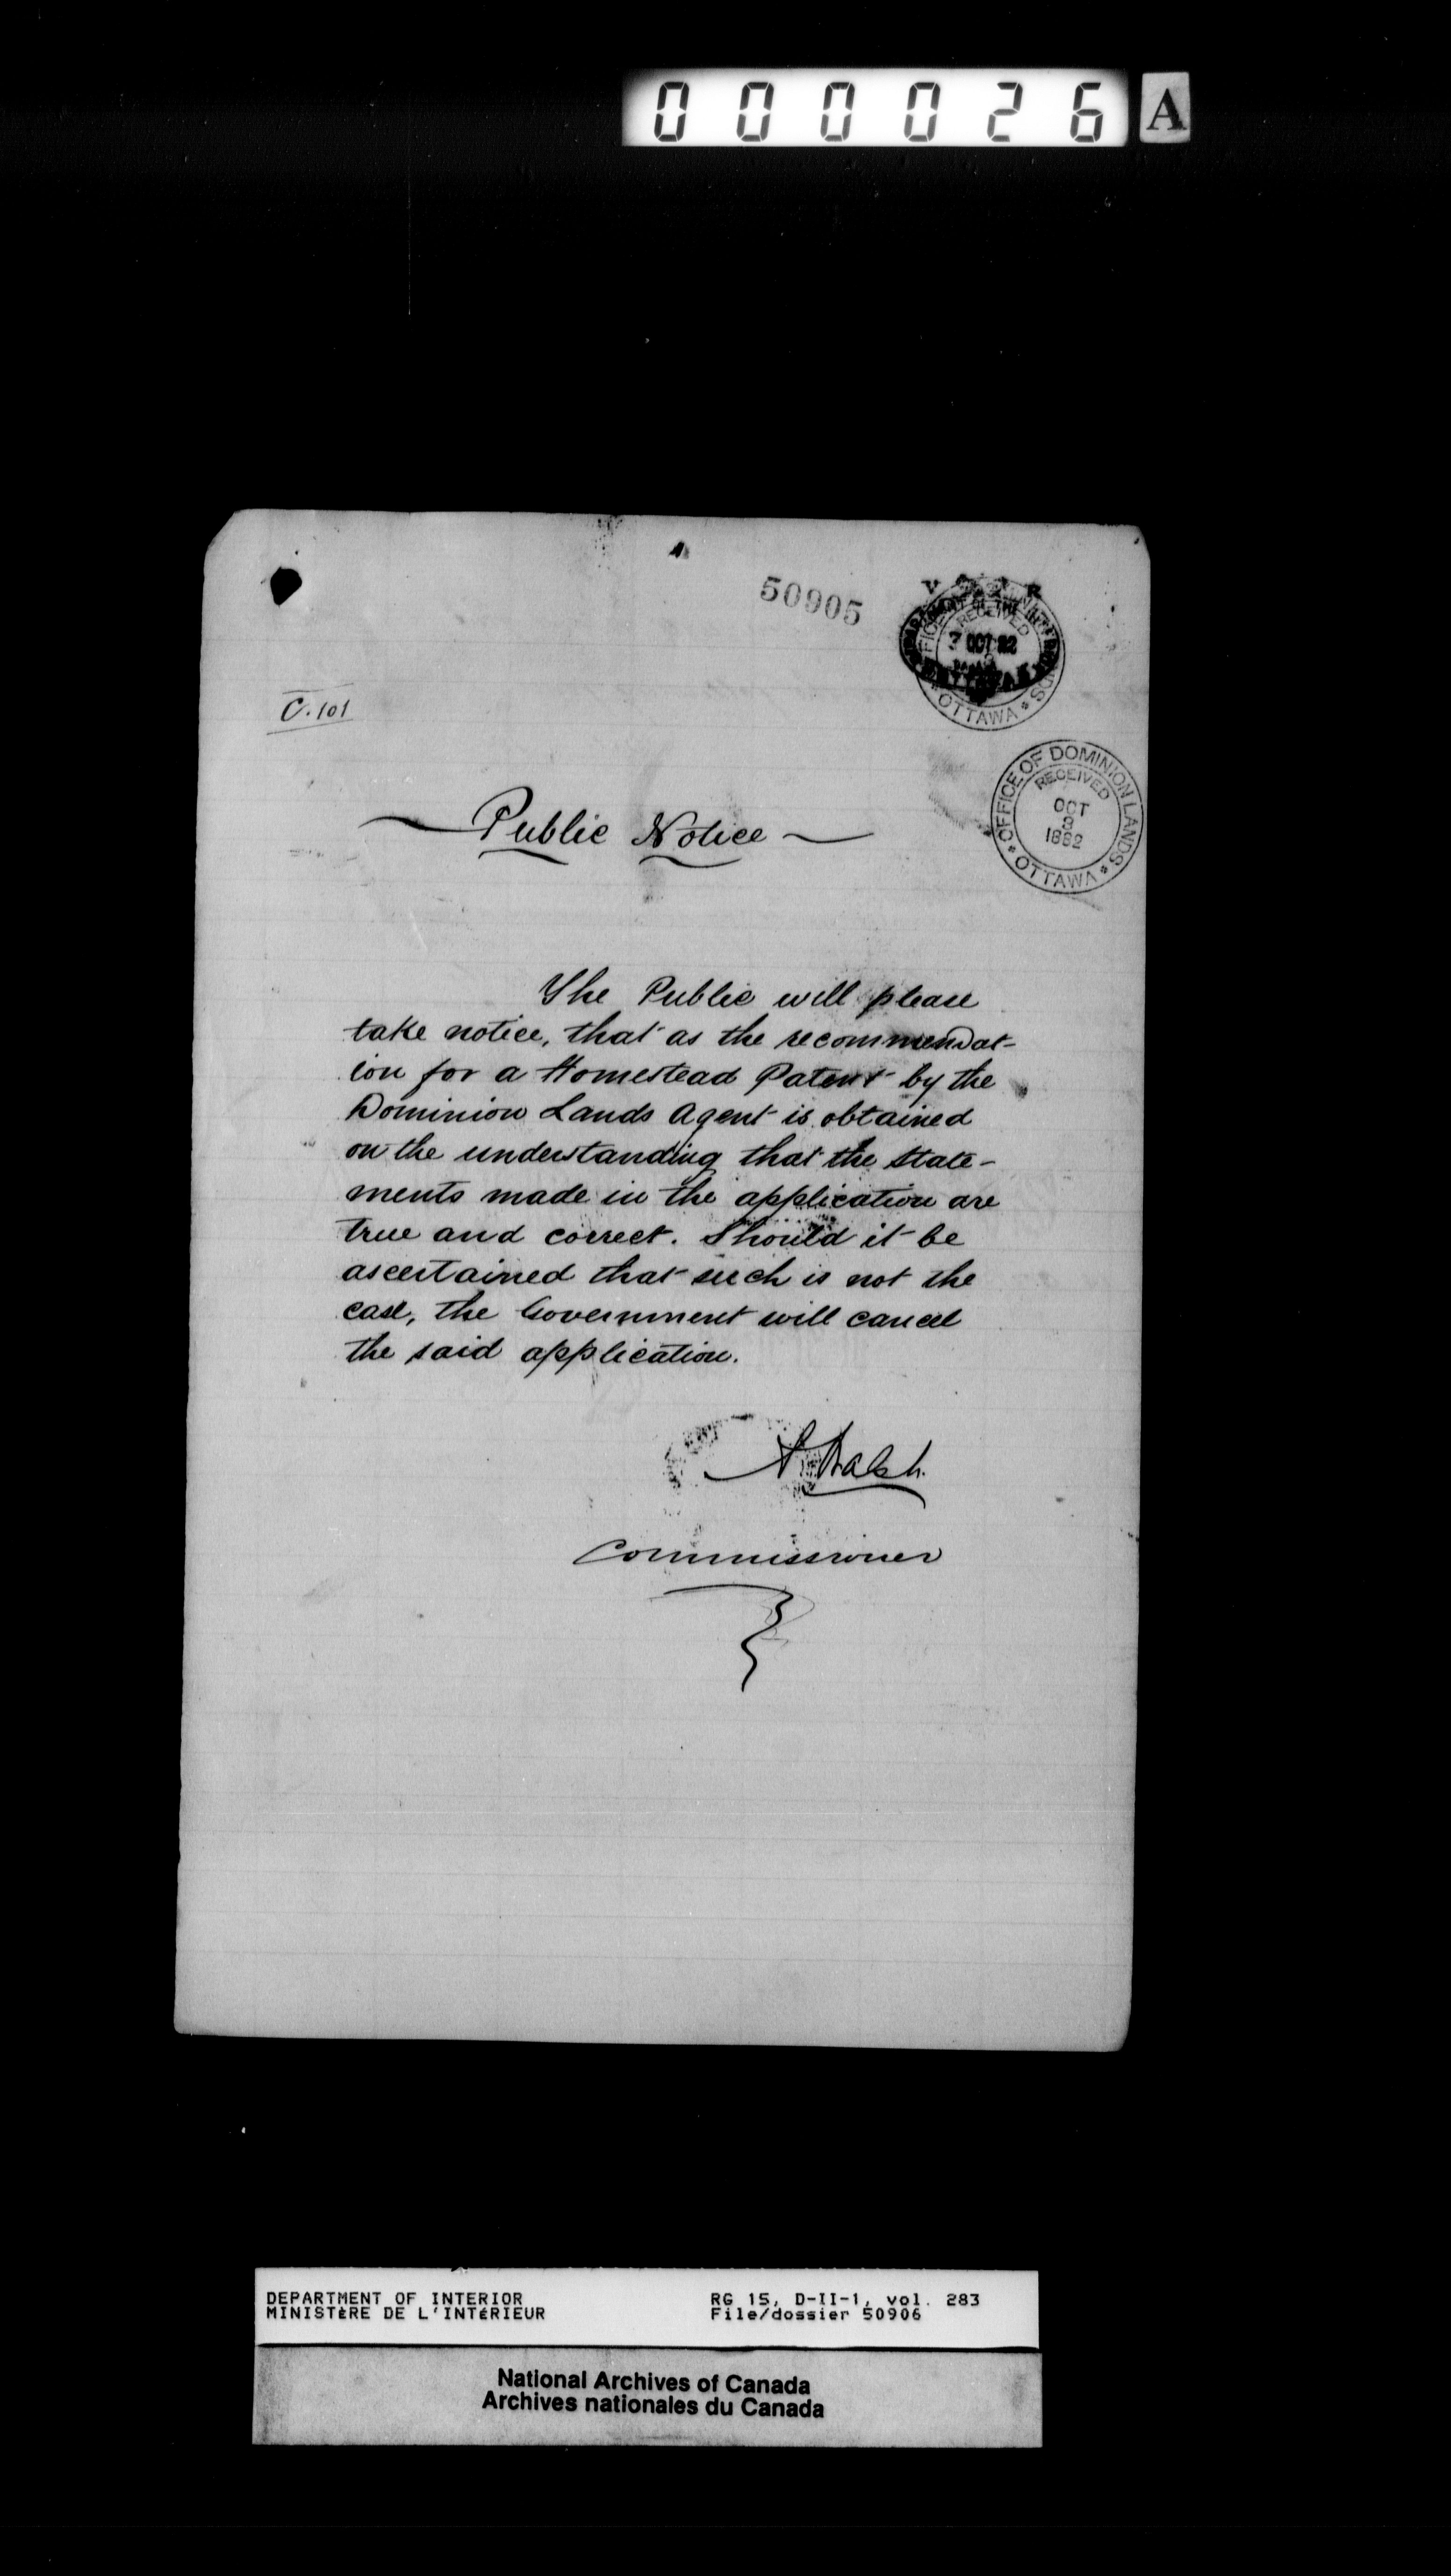 000026 A
50905
RECEIVED
OTTAWA
C. 101
OFFICE OF DOMINION LANDS
RECEIVED
OCT
3
1882
OTTAWA
Public Notice
The Public will please
take notice, that as the recommendat-
ion for a Homestead Patent by the
Dominion Lands Agent is obtained
on the understanding that the state-
ments made in the application are
true and correct. Should it be
ascertained that such is not the
case, the Government will cancel
the said application.
A. Walsh
Commissioner
DEPARTMENT OF INTERIOR
MINISTÈRE DE L'INTÉRIEUR
RG 15, D-II-1, vol. 283
File/dossier 50906
National Archives of Canada
Archives nationales du Canada